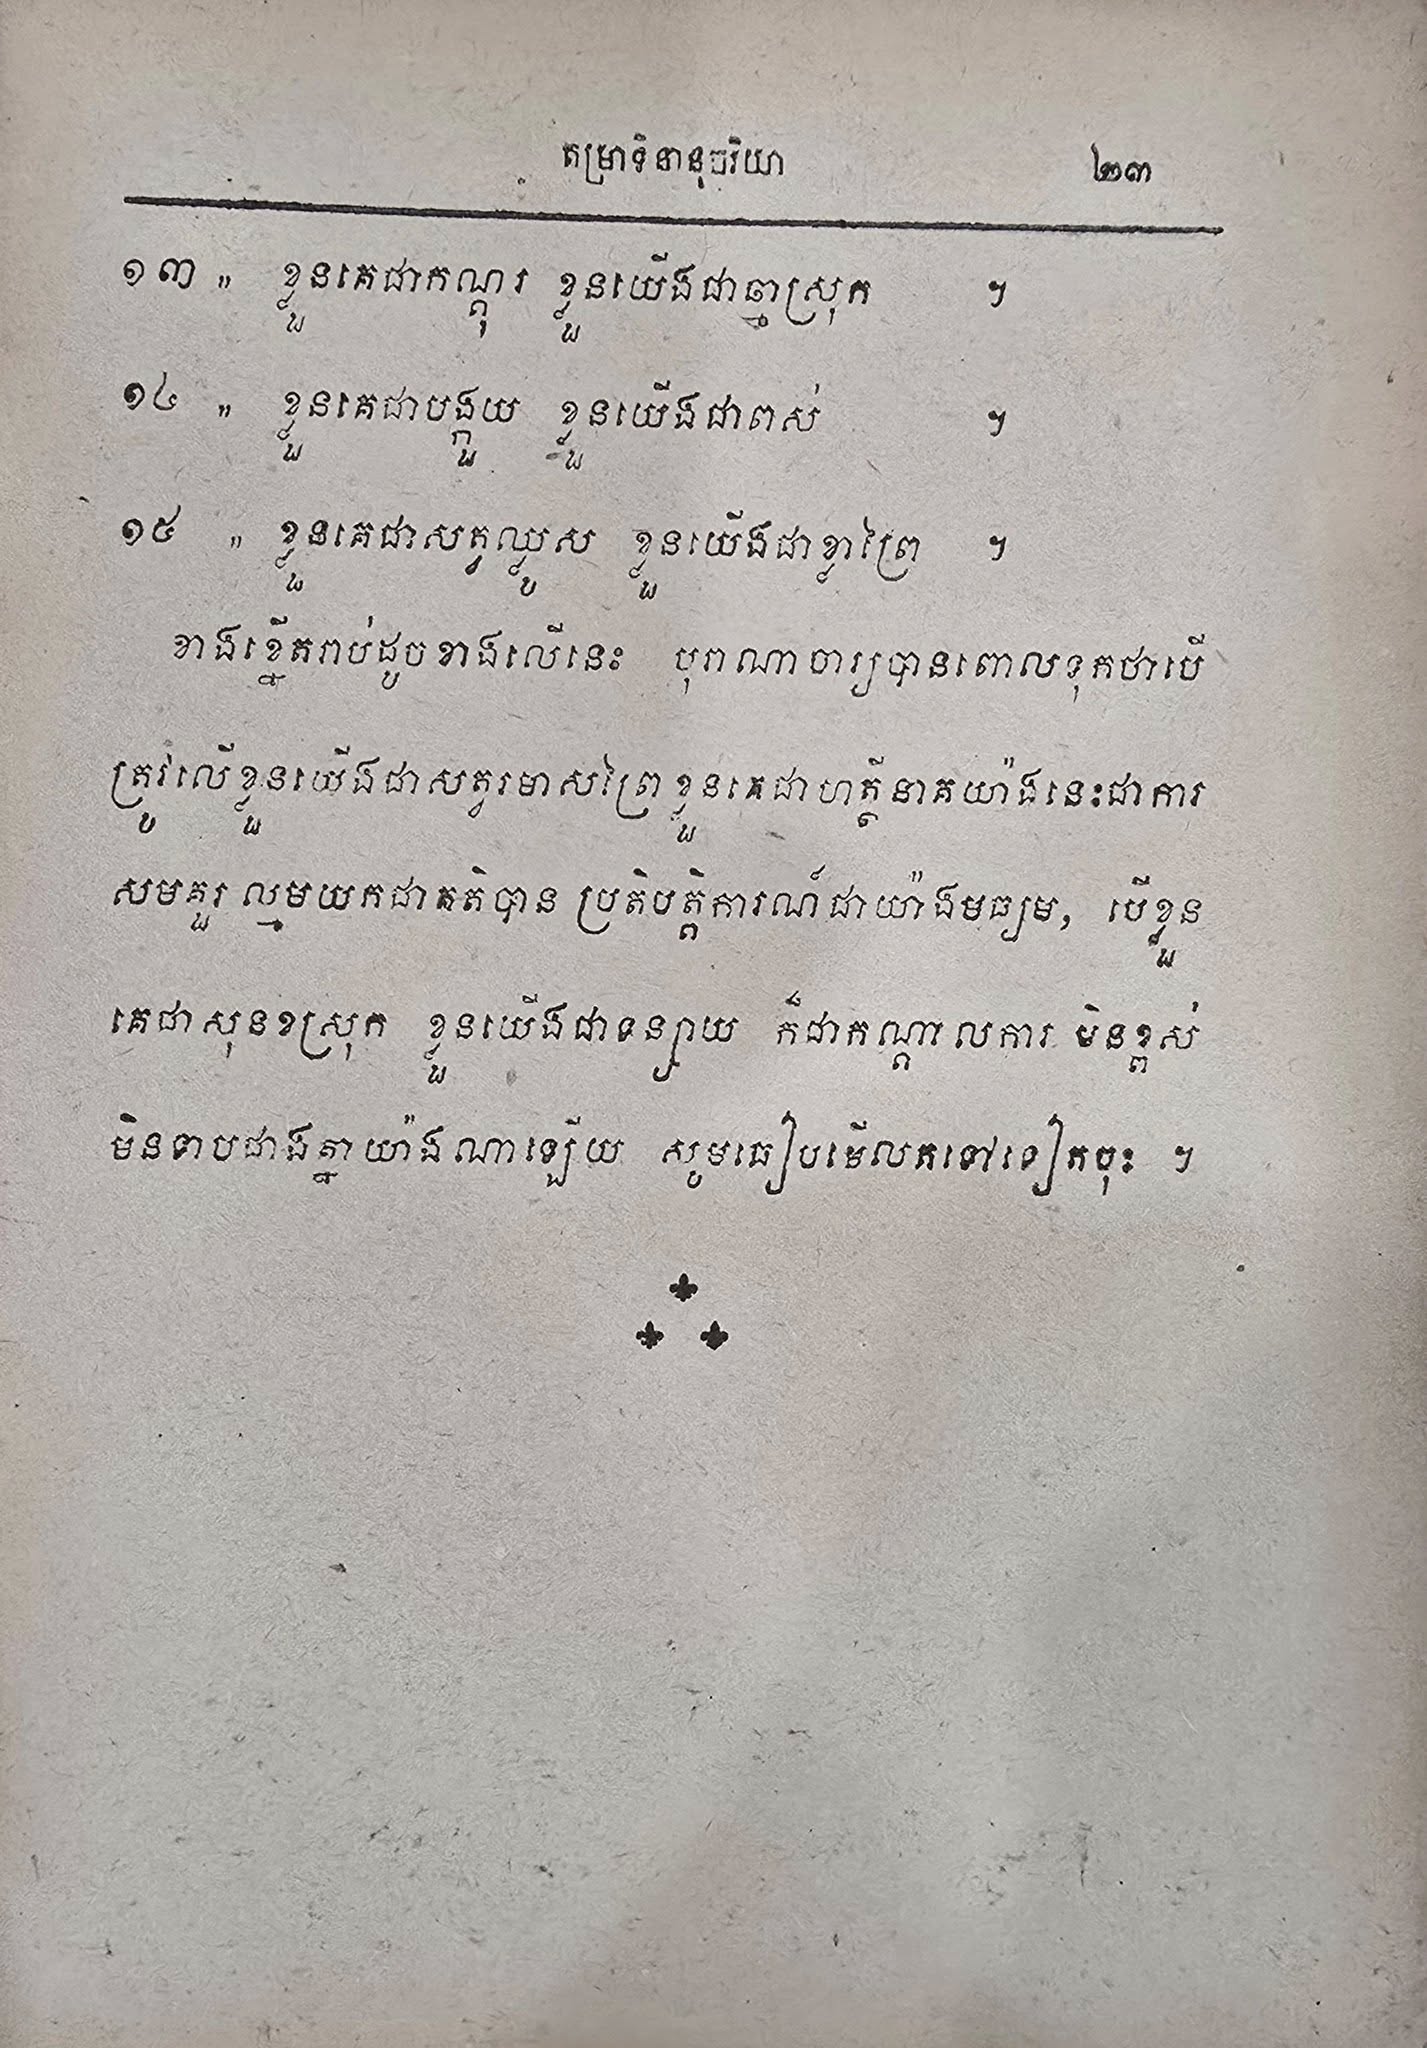 តម្រាទិនានុចរិយា ២៣
១៣ " ខ្លួនគេជាកណ្ដុរ ខ្លួនយើងជាឆ្មាស្រុក ។
១៤ " ខ្លួនគេជាបង្កួយ ខ្លួនយើងជាពស់ ។
១៥ " ខ្លួនគេជាសត្វឈ្លូស ខ្លួនយើងជាខ្លាព្រៃ ។
ខាងខ្នើតរាប់ដូចខាងលើនេះ បុរាណាចារ្យបានពោលទុកថាបើ
ត្រូវលើខ្លួនយើងជាសត្វរមាសព្រៃខ្លួនគេជាហត្ថីនាគយ៉ាងនេះជាការ
សមគួរល្មមយកជាគតិបាន ប្រតិបត្តិការណ៍ជាយ៉ាងមធ្យម, បើខ្លួន
គេជាសុនខស្រុក ខ្លួនយើងជាទន្សាយ ក៏ជាកណ្ដាលការ មិនខ្ពស់
មិនទាបជាងគ្នាយ៉ាងណាឡើយ សូមធៀបមើលតទៅទៀតចុះ ។